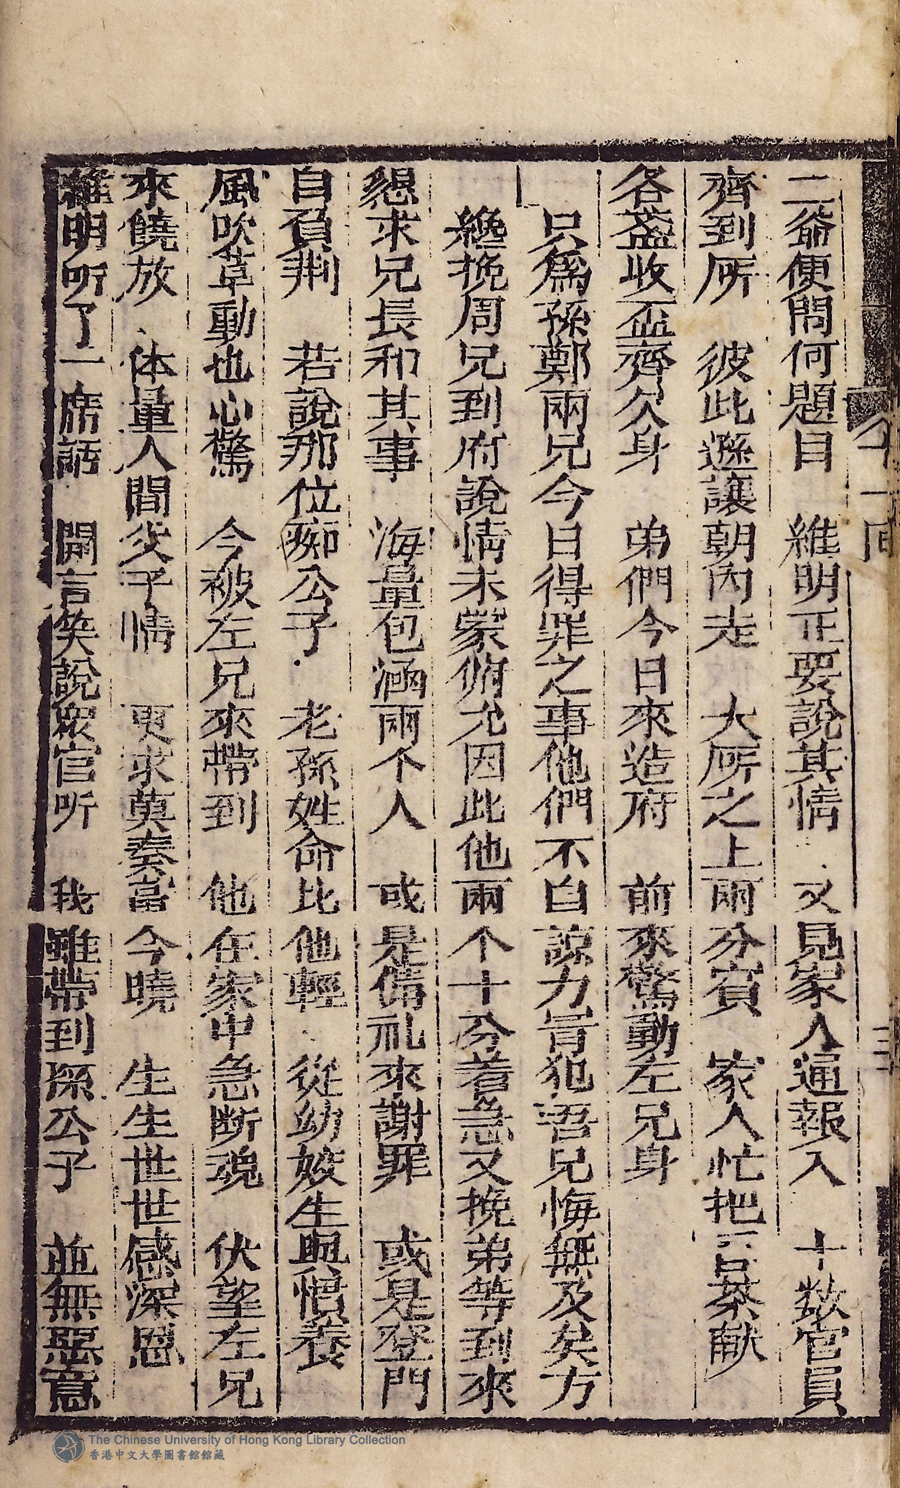 二爺便問何題目　維明正要說其情　又見家人通報入　十数官員
齊到所　彼此遜讓朝內走　大所之上兩分賓　家人忙把茶献
各盏收盃齊欠身　弟們今日來造府　前來驚動左兄身
只爲孫鄭兩兄今日得罪之事他們不自諒力冒犯吾兄悔無及矣方
纔挽周兄到府說情未蒙俯允因此他兩个十分着急又挽弟等到來
懇求兄長和其事　海量包涵兩个人　或是備礼來謝罪　或是登門
自負荆　若說那位痴公子　老孫姓命比他輕　從幼姣生與慣養
風吹草動也心驚　今被左兄來帶到　他在家中急断魂　伏望左兄
來饒放　体量人間父子情　更求莫奏當今曉　生生世世感深恩
維明听了一席話　開言笑說衆官听　我雖帶到孫公子　並無惡意
十一回
三
The Chinese University of Hong Kong Library Collection
香港中文大學圖書館館藏